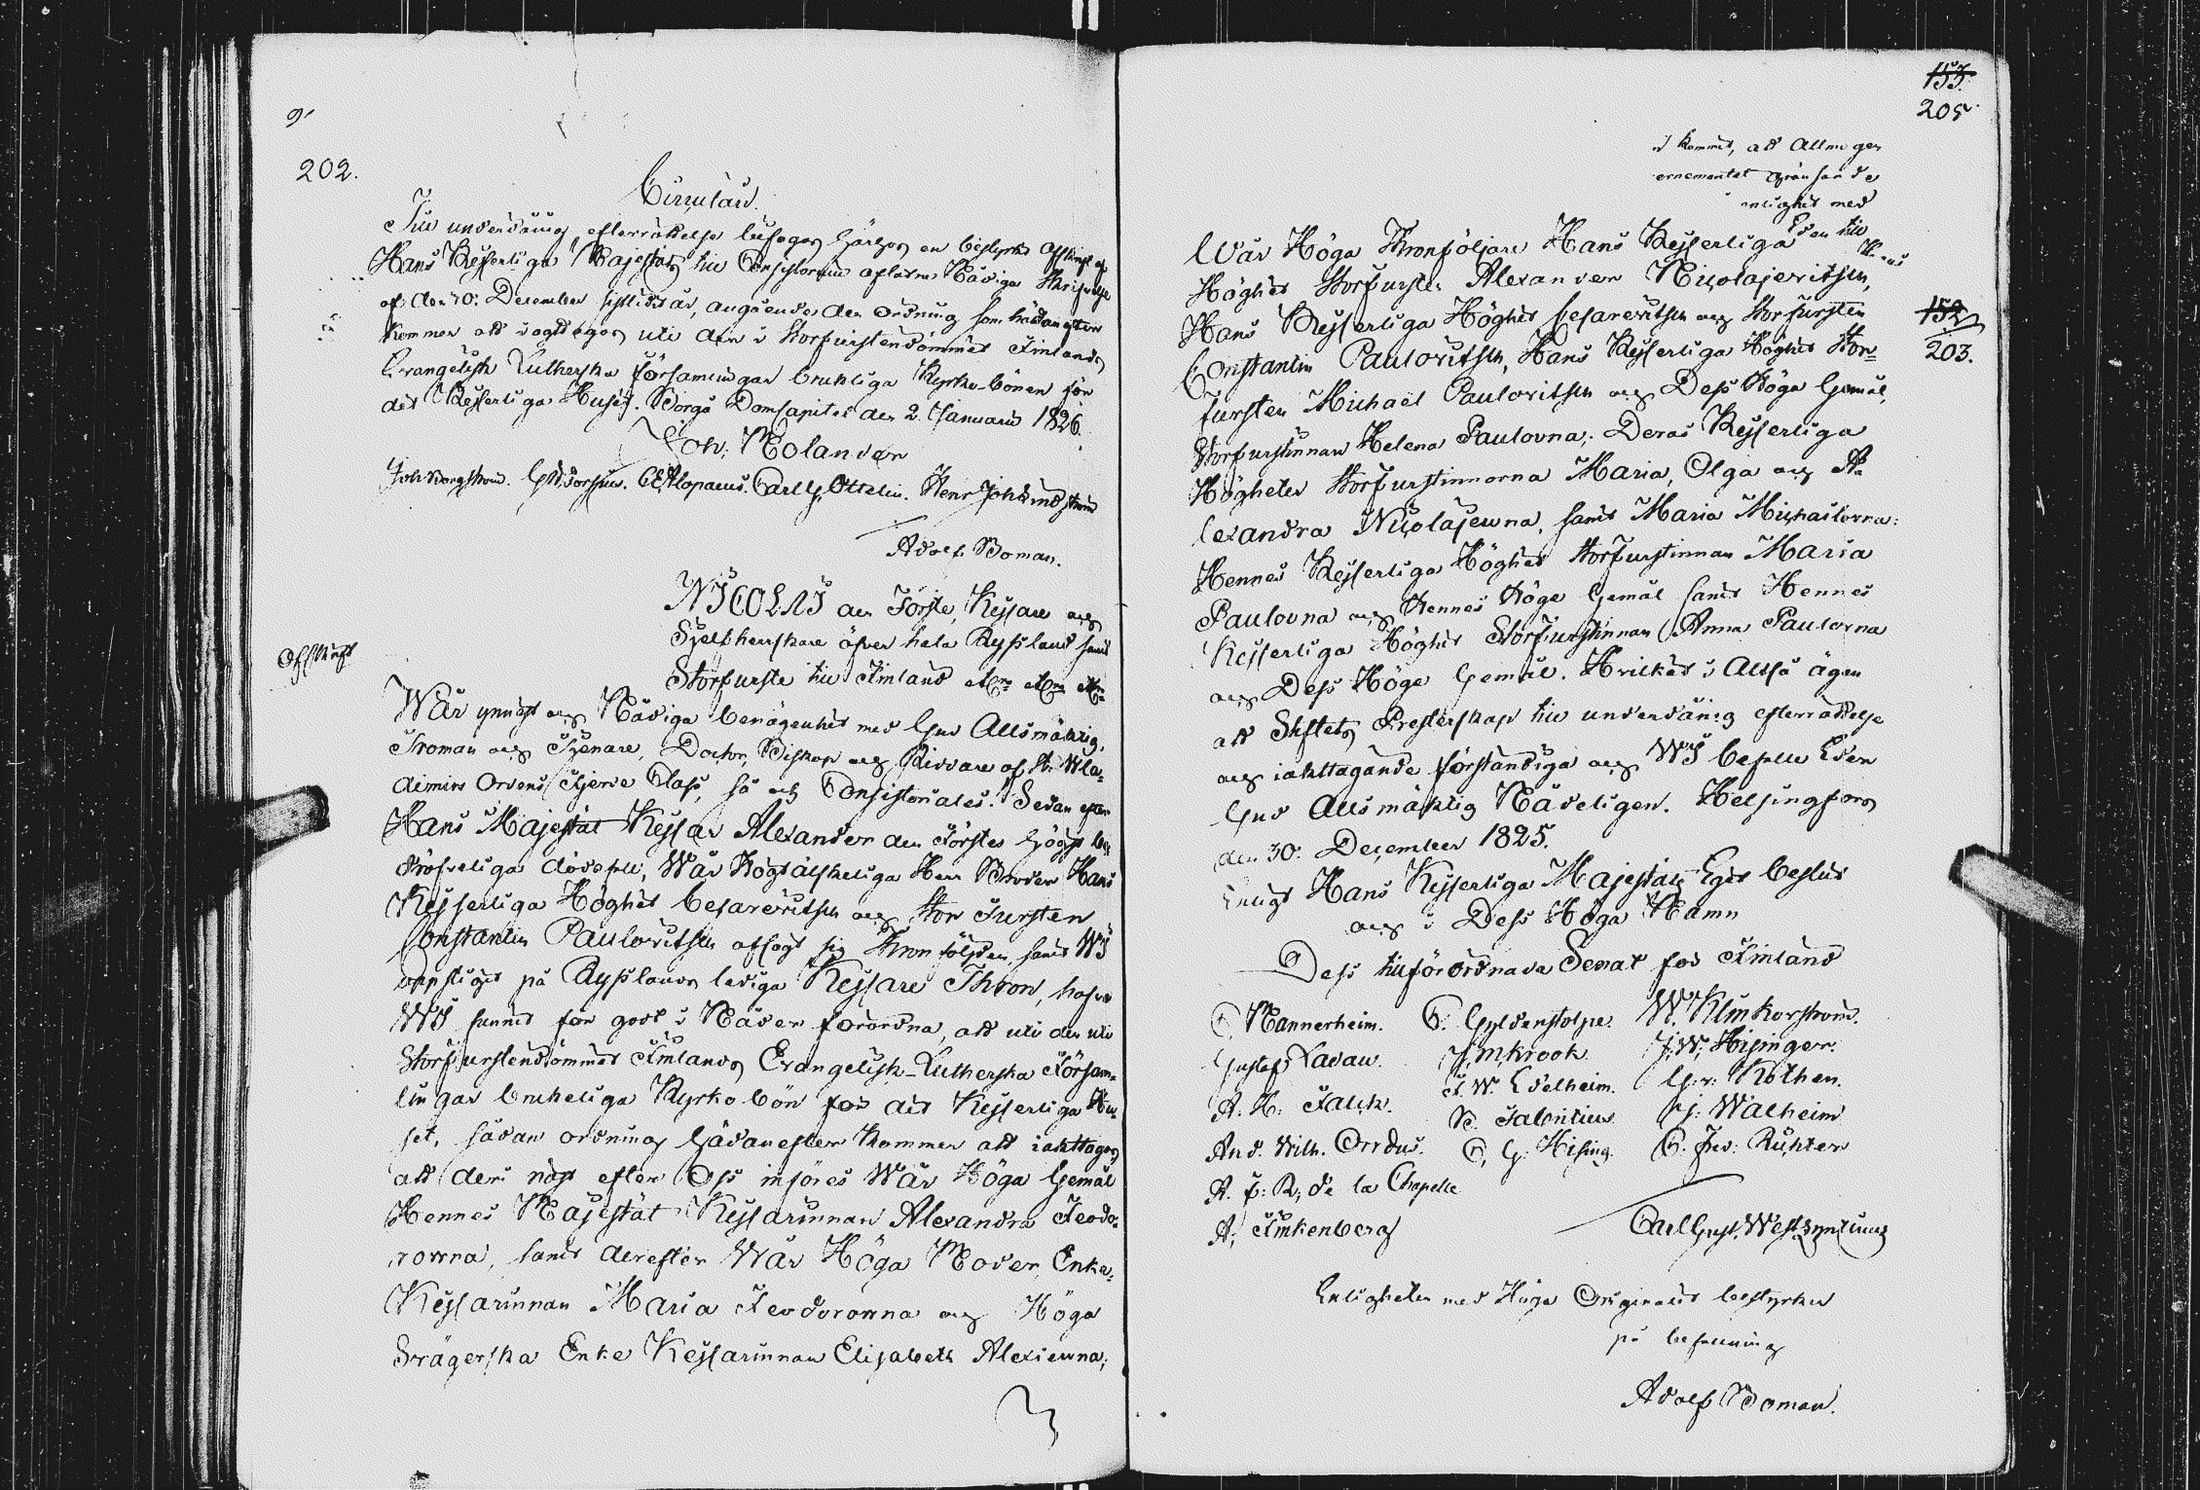 202.
Circulair.
Till underdånig efterrättelse bifogas härhos en bestyrkt Afskrift af
Hans Kejserliga Majestäts till Consistorium aflåtne Nådiga Skrifvelse
af den 30: December sistledit år, angående den ordning som hädanefter
kommer att i agttagas uti den i Storfurstendömmet Finlands
Evangelisk Lutherska församlingar brukliga Kyrko-bönen för
det Kejserliga Huset. Borgå Domcapitel den 2. Januarii 1826.
Joh: Molander
Joh Borgström. Alopaeus. Carl G. Ottelin. Henr Joh
Adolf Boman.
Afskrift
NICOLAI den Förste, Kejsare och
Sjelfherrskare öfver hela Ryssland samt
Storfurste till Finland etc: etc: etc:
Wår ynnest och Nådiga benägenhet med Gud Allsmäktig,
Troman och Tjenare, Doctor, Biskop och Riddare af St. Wla-
dimirs Ordens fjerde Class, så ock Consistoriales! Sedan efter
Hans Majestät Kejsar Alexander den Förstes högst be-
dröfveliga dödsfall, Wår Högtälskeliga Herr Broder Hans
Kejserliga Höghet Cesarevitsch och Stor Fursten
Constantin Paulovitsch afsagt sig Thronföljden, samt WI
uppstigit på Rysslands lediga Kejsare Thron, hafve
WI funnit för godt i Nåder förordna, att uti den uti
Storfurstendömmet Finlands Evangelisk-Lutherska Försam-
lingar brukeliga Kyrko bön för det Kejserliga Hu-
set, sådan ordning hädanefter kommer att iakttagas
att der näst efter Oss införes Wår Höga Gemål
Hennes Majestät Kejsarinnan Alexandra Feodo-
rowna, samt derefter Wår Höga Moder, Enke-
Kejsarinnan Maria Feodorowna och Höga
Svägerska Enke Kejsarinnan Elisabeth Alexiewna;
153.
205
kommit, att Allmogen
gränsande
enlighet med
Eder till
Wår Höga Thronföljare Hans Kejserliga
Höghet Storfursten Alexander Nicolajevitsch,
Hans Kejserliga Höghet Cesarevitsch och Storfursten
Constantin Paulovitsch, Hans Kejserliga Höghet Stor-
fursten Michael Paulovitsch och Dess Höga Gemål,
Storfurstinnan Helena Paulovna; Deras Kejserliga
Högheter Storfurstinnorna Maria, Olga och A-
lexandra Nicolajewna, samt Maria Michailovna:
Hennes Kejserliga Höghet Storfurstinnan Maria
Paulovna och Hennes Höge Gemål samt Hennes
Kejserliga Höghet Storfurstinnan Anna Paulovna
och Dess Höge Gemål. Hvilket i Altså ägen
att Stiftets Presterskap till underdånig efterrättelse
och iakttagande förständiga och WI befalle Eder
Gud Allsmäktig Nådeligen. Helsingfors
den 30: December 1825.
152
203.
Enligt Hans Kejserliga Majestäts Eget beslut
och i Dess Höga Namn
Dess tillförordnade Senat för Finland
C. Mannerheim. C. Gyldenstolpe. W. Klinkowström.
Gustaf Ladau. J. M. Krook. J. W. Hisinger.
A. H: Falck. F. W. Edelheim. G. v: Kothen.
N. Falentius. J: Walheim
And. Wilh. Orrdus. C. G. Hising. C. Fred: Richter
A. F: R; de la Chapelle
A. Finkenberg Carl Gust. Westzynthius
Enligheten med Höga Originalet bestyrker
på befallning
Adolf Boman.